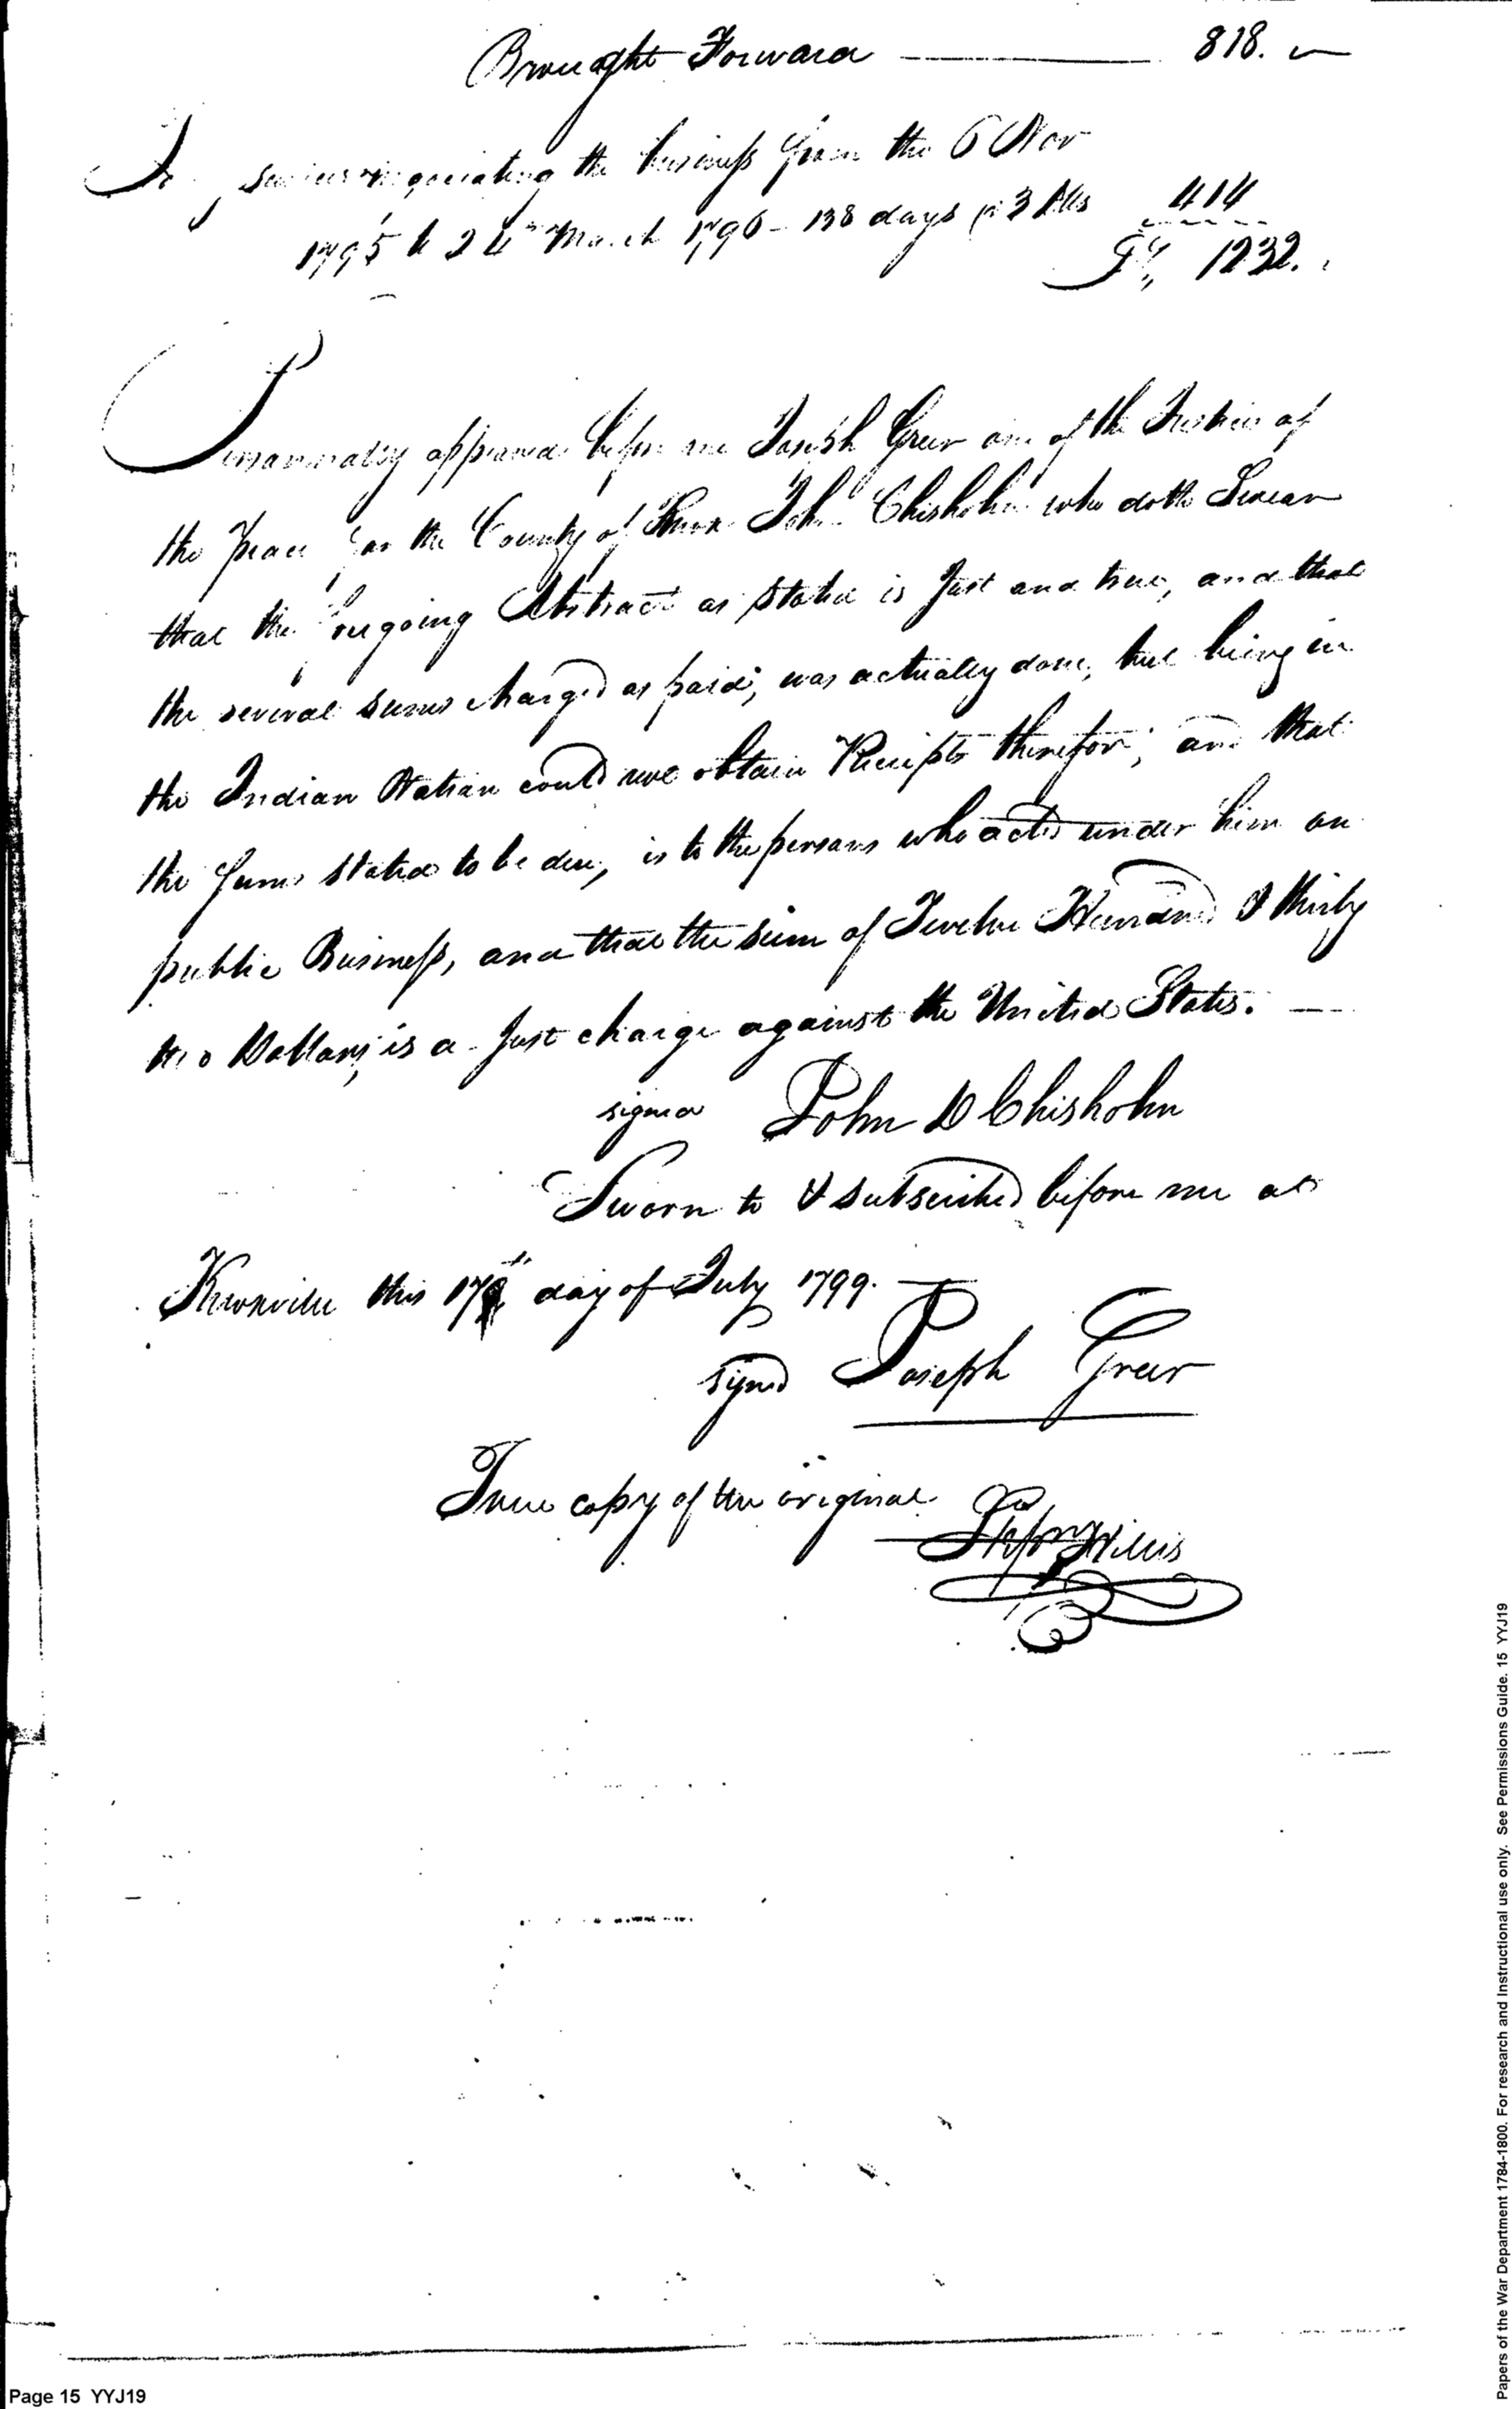 Brought Forward 818.
To my services negociating the business from the 6 Nov
1795 to 24th March 1796 - 138 days @ 3 Dlls 414
1232.
Personally appeared before me Joseph Greer one of the Justices of
the peace for the County of Knox John Chisholm who doth Swear
that the foregoing Abstract as stated is Just and true, and that
the several sums charged as paid, was actually done, but being in
the Indian Nation could not obtain Receipts therefor; and that
the sums stated to be due, is to the persons who acted under him on
public Business, and that the sum of Twelve Hundred & thirty
two Dollars, is a Just charge against the United States.
signed John D Chisholm
Sworn to & subscribed before me at
Knoxville this 17th day of July 1799.
signed Joseph Greer
True copy of the original
Page 15 YYJ19
Papers of the War Department 1784-1800. For research and Instructional use only. See Permissions Guide. 15 YYJ19